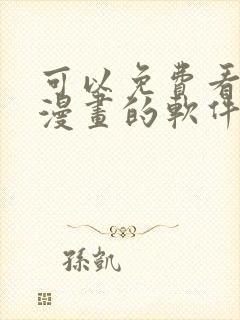 可以免費看
漫畫的軟件
孫凱